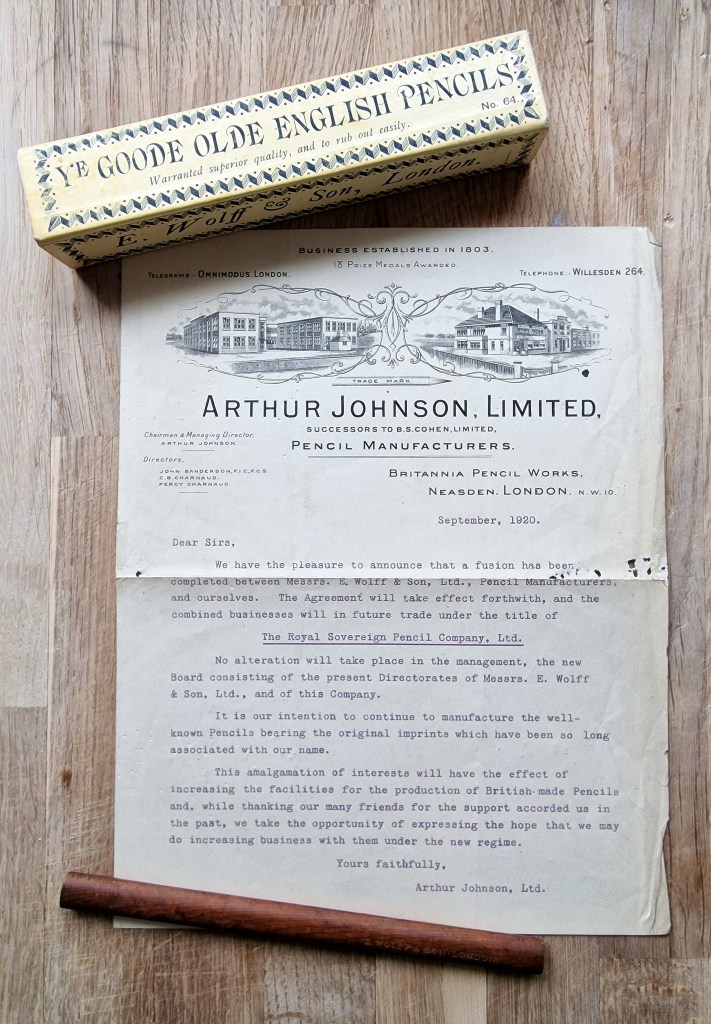 Ye GOODE OLDE ENGLISH PENCILS
No. 64.
Warranted superior quality, and to rub out easily.
E. Wolff & Son, London.
BUSINESS ESTABLISHED IN 1803.
18 PRIZE MEDALS AWARDED.
TELEGRAMS:- OMNIMODUS, LONDON.
TELEPHONE:- WILLESDEN 264.
TRADE MARK.
ARTHUR JOHNSON, LIMITED,
SUCCESSORS TO B.S. COHEN, LIMITED,
PENCIL MANUFACTURERS.
Chairman & Managing Director,
ARTHUR JOHNSON.
Directors,
JOHN SANDERSON, F.I.C., F.C.S.
C.B. CHARNAUD.
PERCY CHARNAUD.
BRITANNIA PENCIL WORKS,
NEASDEN. LONDON, N.W.10.
September, 1920.
Dear Sirs,
We have the pleasure to announce that a fusion has been
completed between Messrs. E. Wolff & Son, Ltd., Pencil Manufacturers,
and ourselves. The Agreement will take effect forthwith, and the
combined businesses will in future trade under the title of
The Royal Sovereign Pencil Company, Ltd.
No alteration will take place in the management, the new
Board consisting of the present Directorates of Messrs. E. Wolff
& Son, Ltd., and of this Company.
It is our intention to continue to manufacture the well-
known Pencils bearing the original imprints which have been so long
associated with our name.
This amalgamation of interests will have the effect of
increasing the facilities for the production of British-made Pencils
and, while thanking our many friends for the support accorded us in
the past, we take the opportunity of expressing the hope that we may
do increasing business with them under the new regime.
Yours faithfully,
Arthur Johnson, Ltd.
E. WOLFF & SON. LONDON